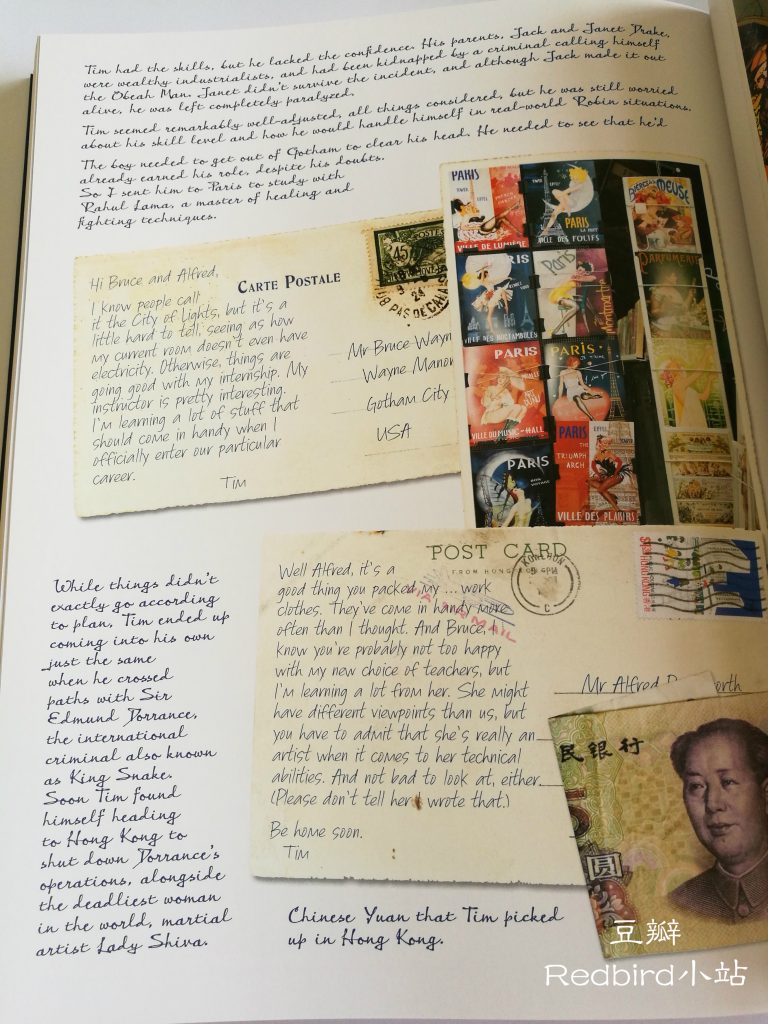 Tim had the skills, but he lacked the confidence. His parents, Jack and Janet Drake,
were wealthy industrialists, and had been kidnapped by a criminal calling himself
the Obeah Man. Janet didn't survive the incident, and although Jack made it out
alive, he was left completely paralyzed.
Tim seemed remarkably well-adjusted, all things considered, but he was still worried
about his skill level and how he would handle himself in real-world Robin situations.
The boy needed to get out of Gotham to clear his head. He needed to see that he'd
already earned his role, despite his doubts.
So I sent him to Paris to study with
Rahul Lama, a master of healing and
fighting techniques.
Hi Bruce and Alfred,
I know people call
it the City of Lights, but it's a
little hard to tell, seeing as how
my current room doesn't even have
electricity. Otherwise, things are
going good with my internship. My
instructor is pretty interesting.
I'm learning a lot of stuff that
should come in handy when I
officially enter our particular
career.
Tim
CARTE POSTALE
45
POSTES
PAS DE CALAIS
Mr Bruce Wayn
Wayne Manor
Gotham City
USA
PARIS
VILLE DE LUMIÈRE
PARIS
VILLE DES FOLIES
PARIS
VILLE DES NOCTAMBULES
PARIS
Montmartre
PARIS
VILLE DU MUSIC-HALL
PARIS
PARIS
PARIS
THE TRIUMPH ARCH
EIFFEL
VILLE DES PLAISIRS
MEUSE
PARFUMERIE
While things didn't
exactly go according
to plan, Tim ended up
coming into his own
just the same
when he crossed
paths with Sir
Edmund Dorrance,
the international
criminal also known
as King Snake.
Soon Tim found
himself heading
to Hong Kong to
shut down Dorrance's
operations, alongside
the deadliest woman
in the world, martial
artist Lady Shiva.
POST CARD
FROM HONG
KOWLOON
C
AIR MAIL
Well Alfred, it's a
good thing you packed my ... work
clothes. They've come in handy more
often than I thought. And Bruce, I
know you've probably not too happy
with my new choice of teachers, but
I'm learning a lot from her. She might
have different viewpoints than us, but
you have to admit that she's really an
artist when it comes to her technical
abilities. And not bad to look at, either.
(Please don't tell her I wrote that.)
Be home soon.
Tim
Mr Alfred P
orth
民银行
圆
Chinese Yuan that Tim picked
up in Hong Kong.
豆瓣
Redbird小站